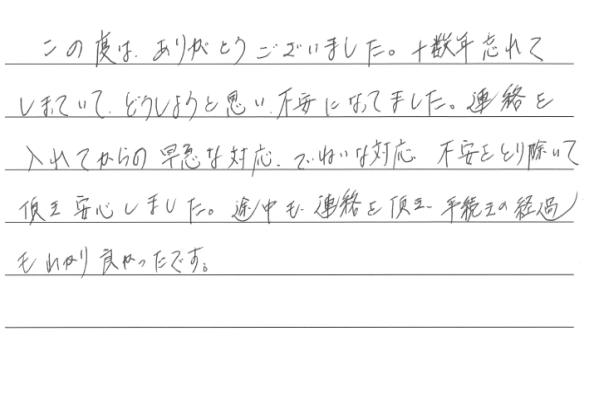 この度は、ありがとうございました。十数年忘れて
しまていて、どうしようと思い、不安になってました。連絡を
入れてからの早急な対応、でいねいな対応 不安をとり除いて
頂き安心しました。途中も、連絡を頂き、手続きの経過
もわかり良かったです。